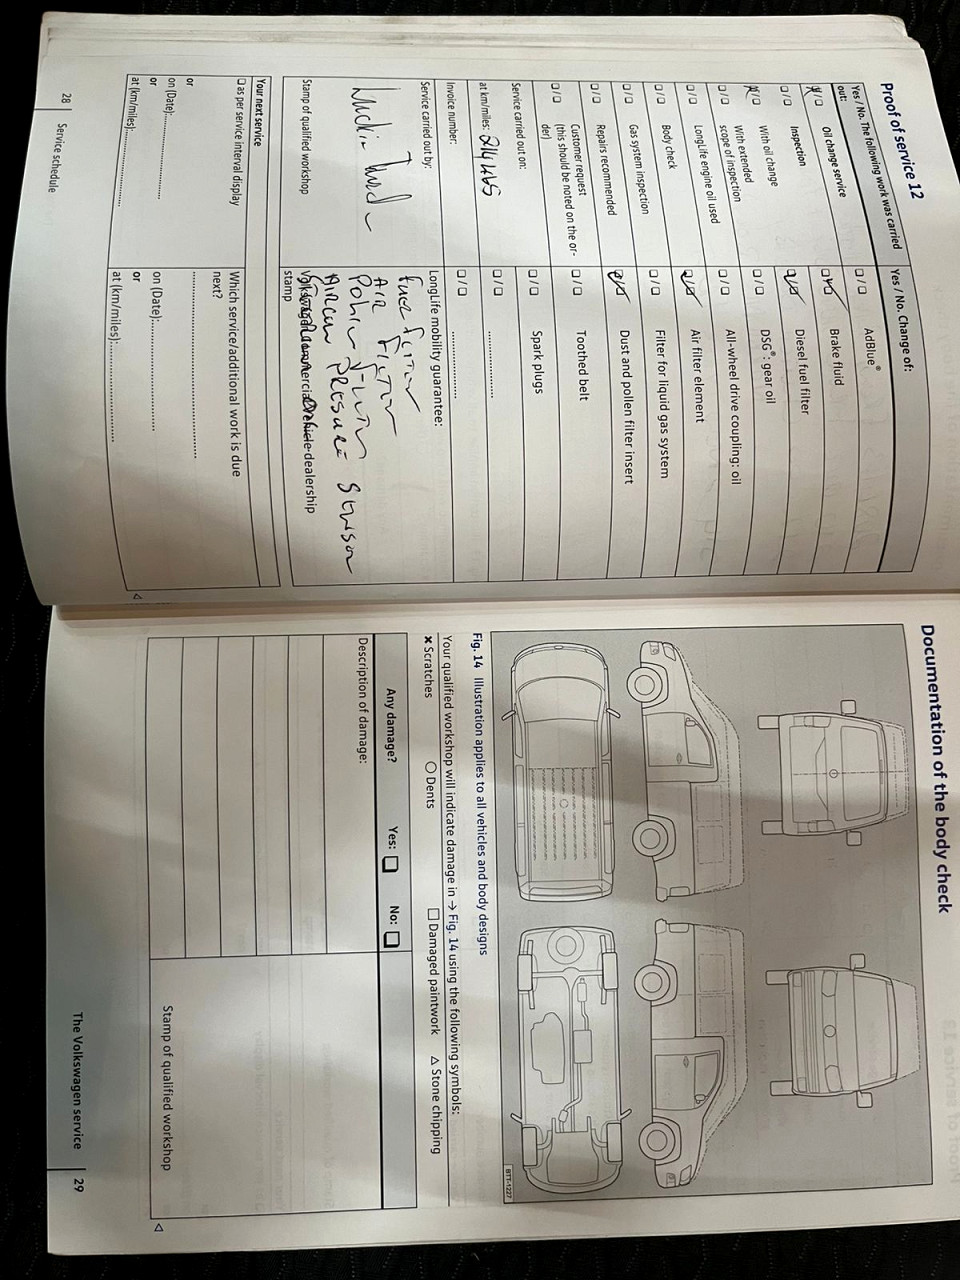 Proof of service 12
Yes / No. The following work was carried out:
☒/☐ Oil change service
☐/☐ Inspection
☒/☐ With oil change
☐/☐ With extended scope of inspection
☐/☐ LongLife engine oil used
☐/☐ Body check
☐/☐ Gas system inspection
☐/☐ Repairs recommended
☐/☐ Customer request (this should be noted on the order)
Service carried out on:
at km/miles: 214465
Invoice number:
Service carried out by:
Stamp of qualified workshop
Yes / No. Change of:
☐/☐ AdBlue®
☐/☐ Brake fluid
☐/☐ Diesel fuel filter
☐/☐ DSG®: gear oil
☐/☐ All-wheel drive coupling: oil
☐/☐ Air filter element
☐/☐ Filter for liquid gas system
☐/☐ Dust and pollen filter insert
☐/☐ Toothed belt
☐/☐ Spark plugs
☐/☐ ....................
☐/☐ ....................
LongLife mobility guarantee:
Fuel Filter
Air Filter
Pollin Filter
Aircon Presure Sensor
Volkswagen commercial vehicle dealership stamp
Your next service
☐ as per service interval display
or
on (Date):....................
or
at (km/miles):....................
Which service/additional work is due next?
....................
on (Date):....................
or
at (km/miles):....................
28 Service schedule
Documentation of the body check
BTT-1227
Fig. 14 Illustration applies to all vehicles and body designs
Your qualified workshop will indicate damage in → Fig. 14 using the following symbols:
✗ Scratches ○ Dents □ Damaged paintwork △ Stone chipping
Any damage? Yes: ☐ No: ☐
Description of damage:
Stamp of qualified workshop
The Volkswagen service 29